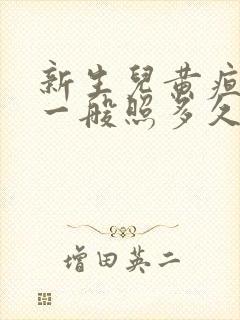 新生兒黃疸
一般照多久
增田英二